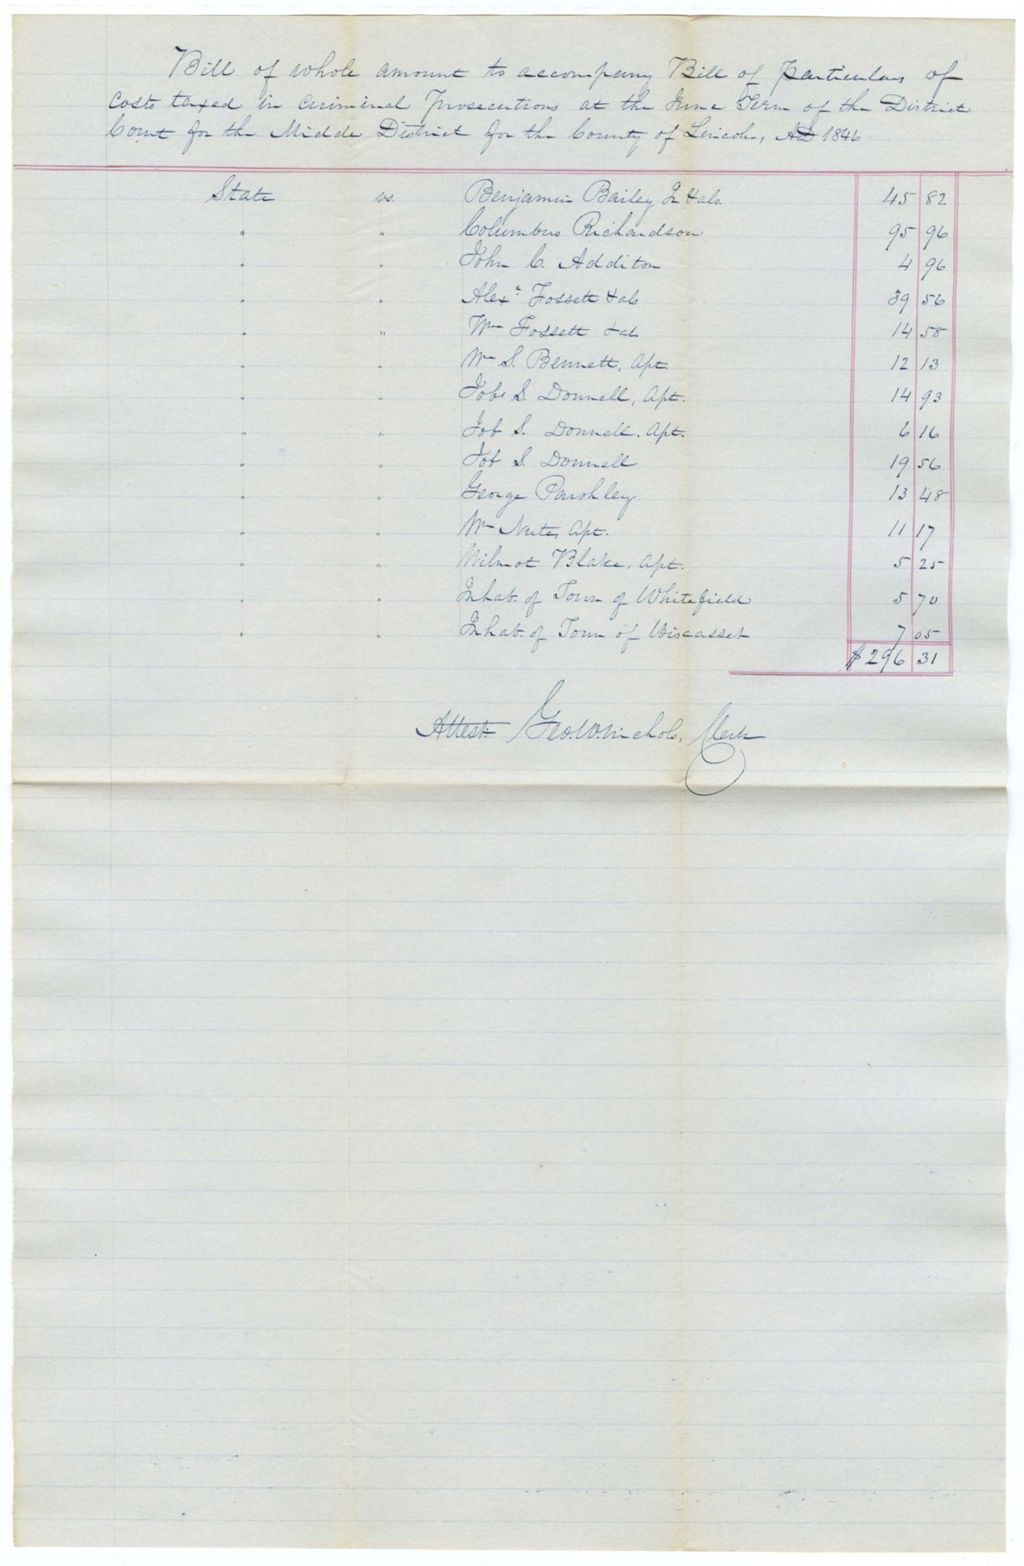 Bill of whole amount to accompany Bill of Particulars of
costs taxed in criminal prosecutions at the June Term of the District
Court for the Middle District for the County of Lincoln, AD 1846
State vs. Benjamin Bailey Jr & als. 45 82
" " Columbus Richardson 95 96
" " John C. Additon 4 96
" " Alexr Fossett & al 39 56
" " Wm Fossett & al 14 58
" " Wm S. Bennett, Apt. 12 13
" " Job S. Donnell, Apt. 14 93
" " Job S. Donnell. Apt. 6 16
" " Job S. Donnell 19 56
" " George Parshley 13 48
" " Wm Nute, Apt. 11 17
" " Wilmot Blake, Apt. 5 25
" " Inhab. of Town of Whitefield 5 70
" " Inhab. of Town of Wiscasset 7 05
$296 31
Attest Geo. W. Nichols, Clerk